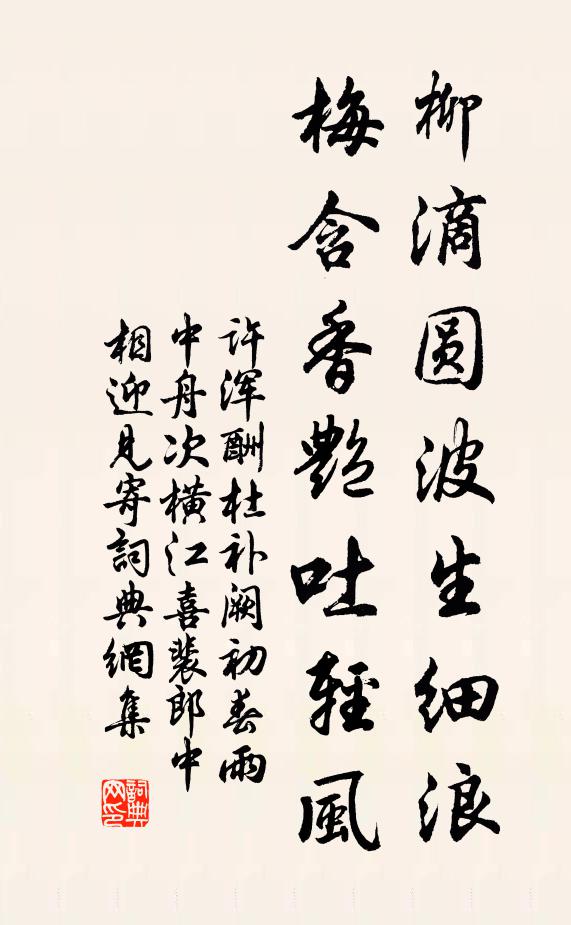 柳滴圆波生细浪
梅含香艳吐轻風
许浑酬杜补阙初春雨
中舟次横江喜裴郎中
相迎見寄詞典網集
詞典
网印